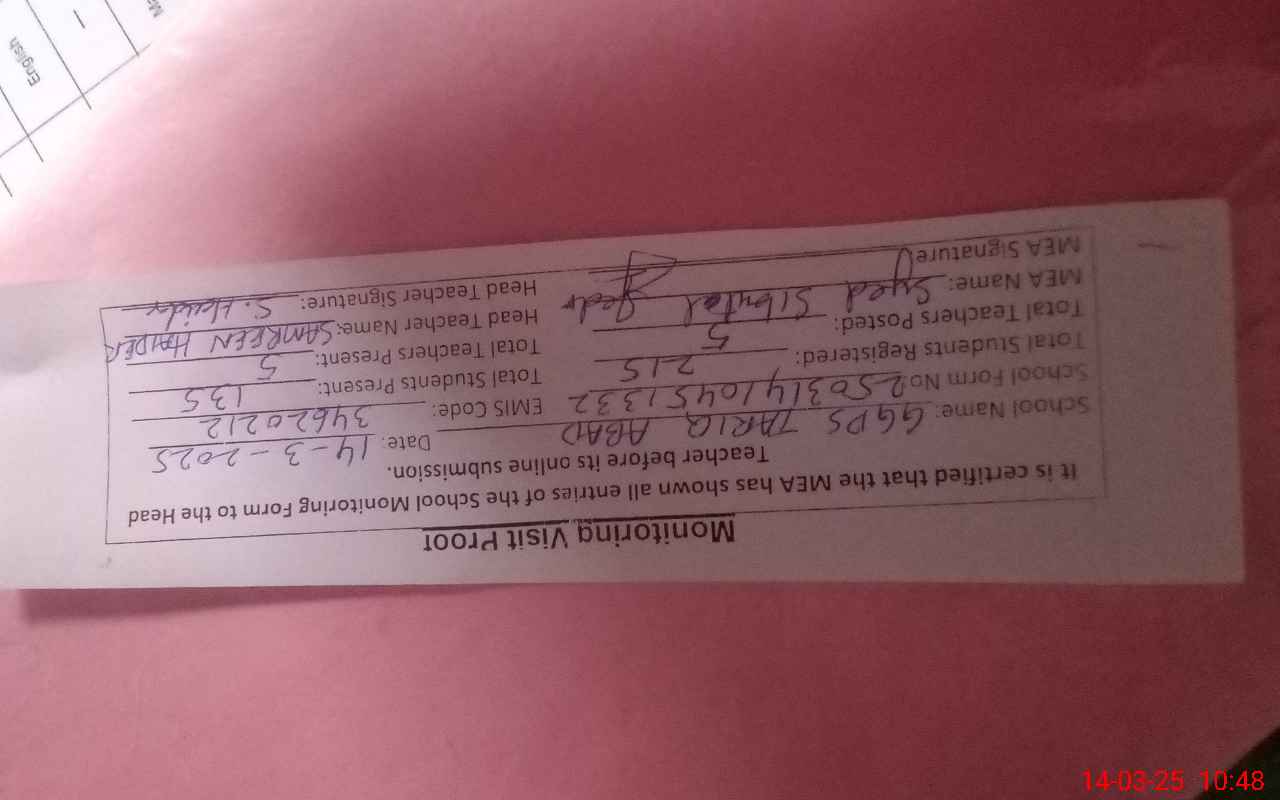 Monitoring Visit Proof
It is certified that the MEA has shown all entries of the School Monitoring Form to the Head
Teacher before its online submission.
School Name: GGPS TARIQ ABAD Date: 14-3-2025
School Form No: 25031410451332 EMIS Code: 34620212
Total Students Registered: 215 Total Students Present: 135
Total Teachers Posted: 5 Total Teachers Present: 5
MEA Name: Syed Head Teacher Name: SAMREEN HAIDER
MEA Signature Head Teacher Signature: S. Haider
English
14-03-25 10:48